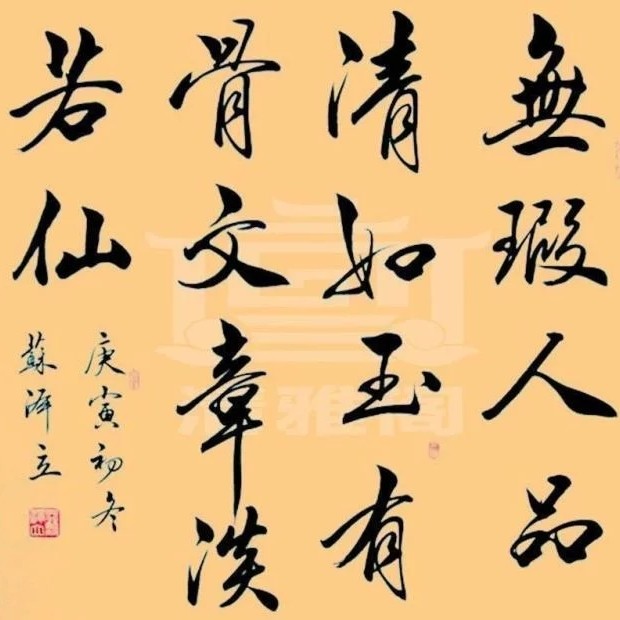 無瑕人品
清如玉有
骨文章淡
若仙
庚寅初冬
蘇澤立
雅阁